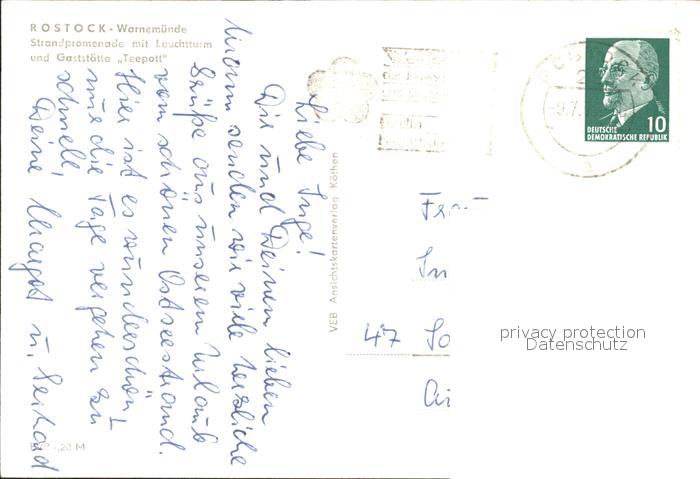 ROSTOCK - Warnemünde
Strandpromenade mit Leuchtturm
und Gaststätte „Teepott"
Liebe Inge!
Dir und Deinen lieben
senden wir viele herzliche
Grüße aus unserem Urlaub
vom schönen Ostseestrand.
Hier ist es wunderschön!
nur die Tage vergehen zu
schnell!
Deine Margot u. Gerhard
EVP -,20 M
VEB Ansichtskartenverlag Köthen
DEUTSCHE
DEMOKRATISCHE REPUBLIK
10
47
privacy protection
Datenschutz